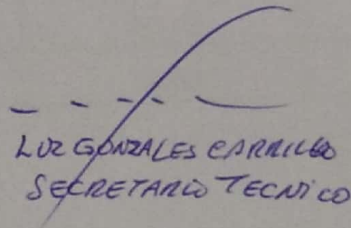 LUZ GONZALES CARRILLO
SECRETARIO TECNICO